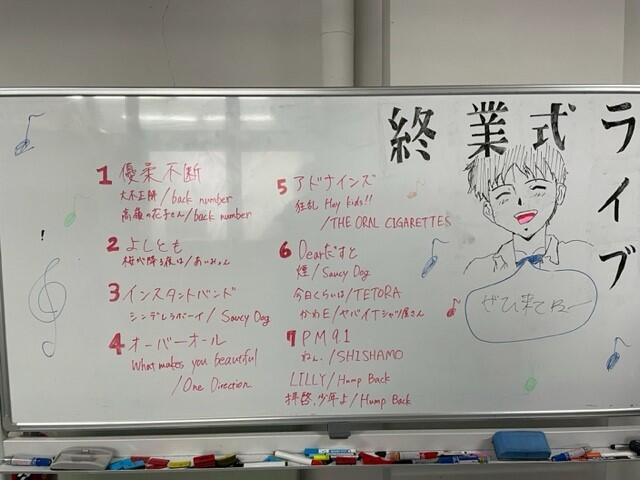 終業式ライブ
1 優柔不断
大不正解/back number
高嶺の花子さん/back number
2 よしとも
桜が降る夜は/あいみょん
3 インスタントバンド
シンデレラボーイ/Saucy Dog
4 オーバーオール
What makes you beautiful
/One Direction
5 アドナインズ
狂乱 Hey kids!!
/THE ORAL CIGARETTES
6 Dearだすと
煙/Saucy Dog
今日くらいは/TETORA
かわE/ヤバイTシャツ屋さん
7 PM9.1
ねぇ、/SHISHAMO
LILLY/Hump Back
拝啓、少年よ/Hump Back
ぜひ来てねー